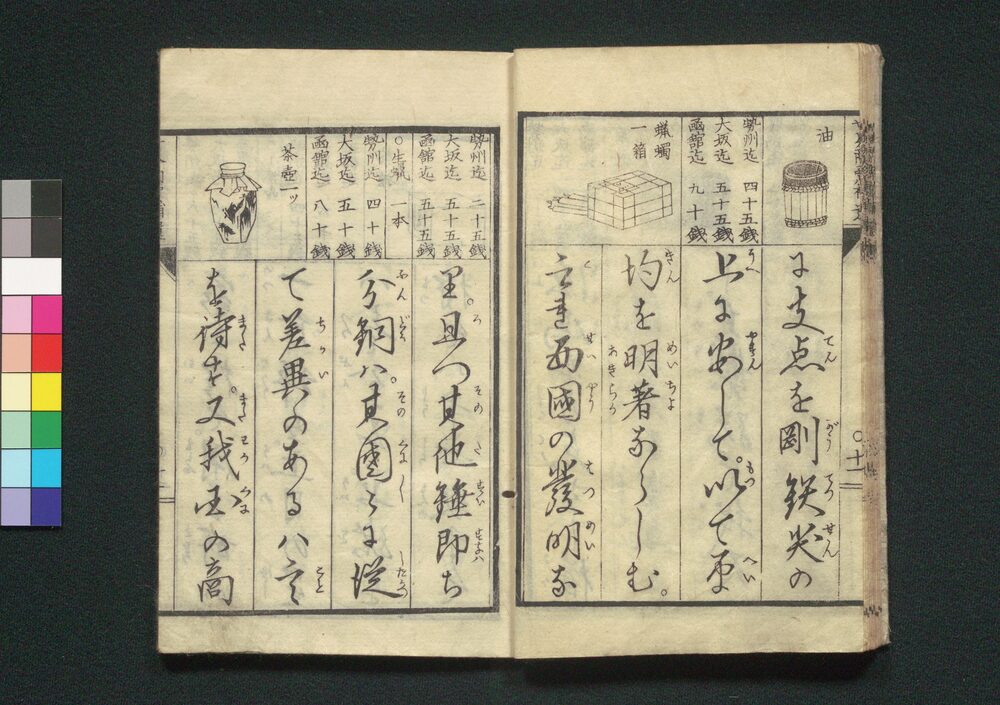 油
勢州迄 四十五銭
大坂迄 五十五銭
函舘迄 九十銭
蝋蠋
一箱
に支点を剛鉄尖の
上に安して。以て平
均を明著ならしむ。
これ西國の發明な
○十
勢州迄 二十五銭
大坂迄 五十五銭
函舘迄 五十五銭
一本
勢州迄 四十銭
大坂迄 五十銭
函舘迄 八十銭
茶壺一ッ
里。且つ其他錘即ち
分銅ハ。其國々に従
て差異のあるハ言
を待ず。又我国の商